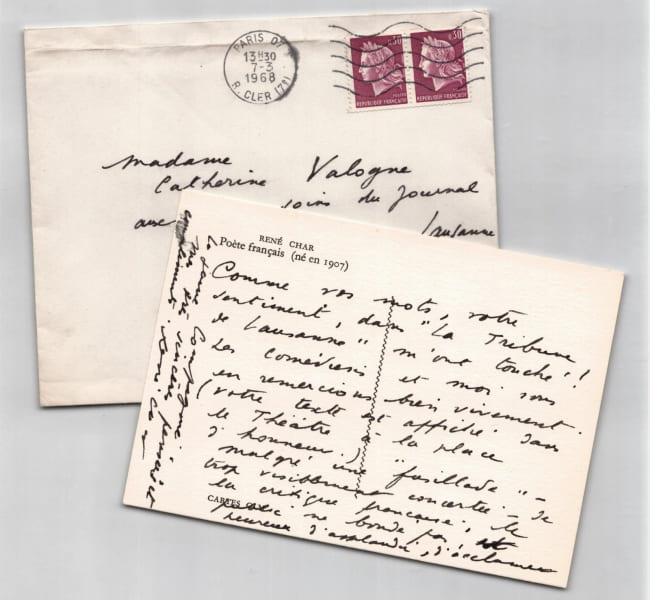 PARIS
13H30
7-3
1968
R. CLER (7e)
0,30
0,30
POSTES
REPUBLIQUE FRANÇAISE
REPUBLIQUE FRANÇAISE
Madame
Catherine Valogne
aux soins du Journal
Lausanne
RENÉ CHAR
Poète français (né en 1907)
Comme vos mots, votre
sentiment, dans "La Tribune
de Lausanne" m'ont touché!
Les comédiens et moi vous
en remercions bien vivement.
(Votre texte est affiché dans
le Théâtre à la place
d'honneur.)
malgré une "fusillade" -
trop visiblement concertée - de
la critique française, le
CARTES
public ne boude pas,
heureux d'applaudir, d'acclamer